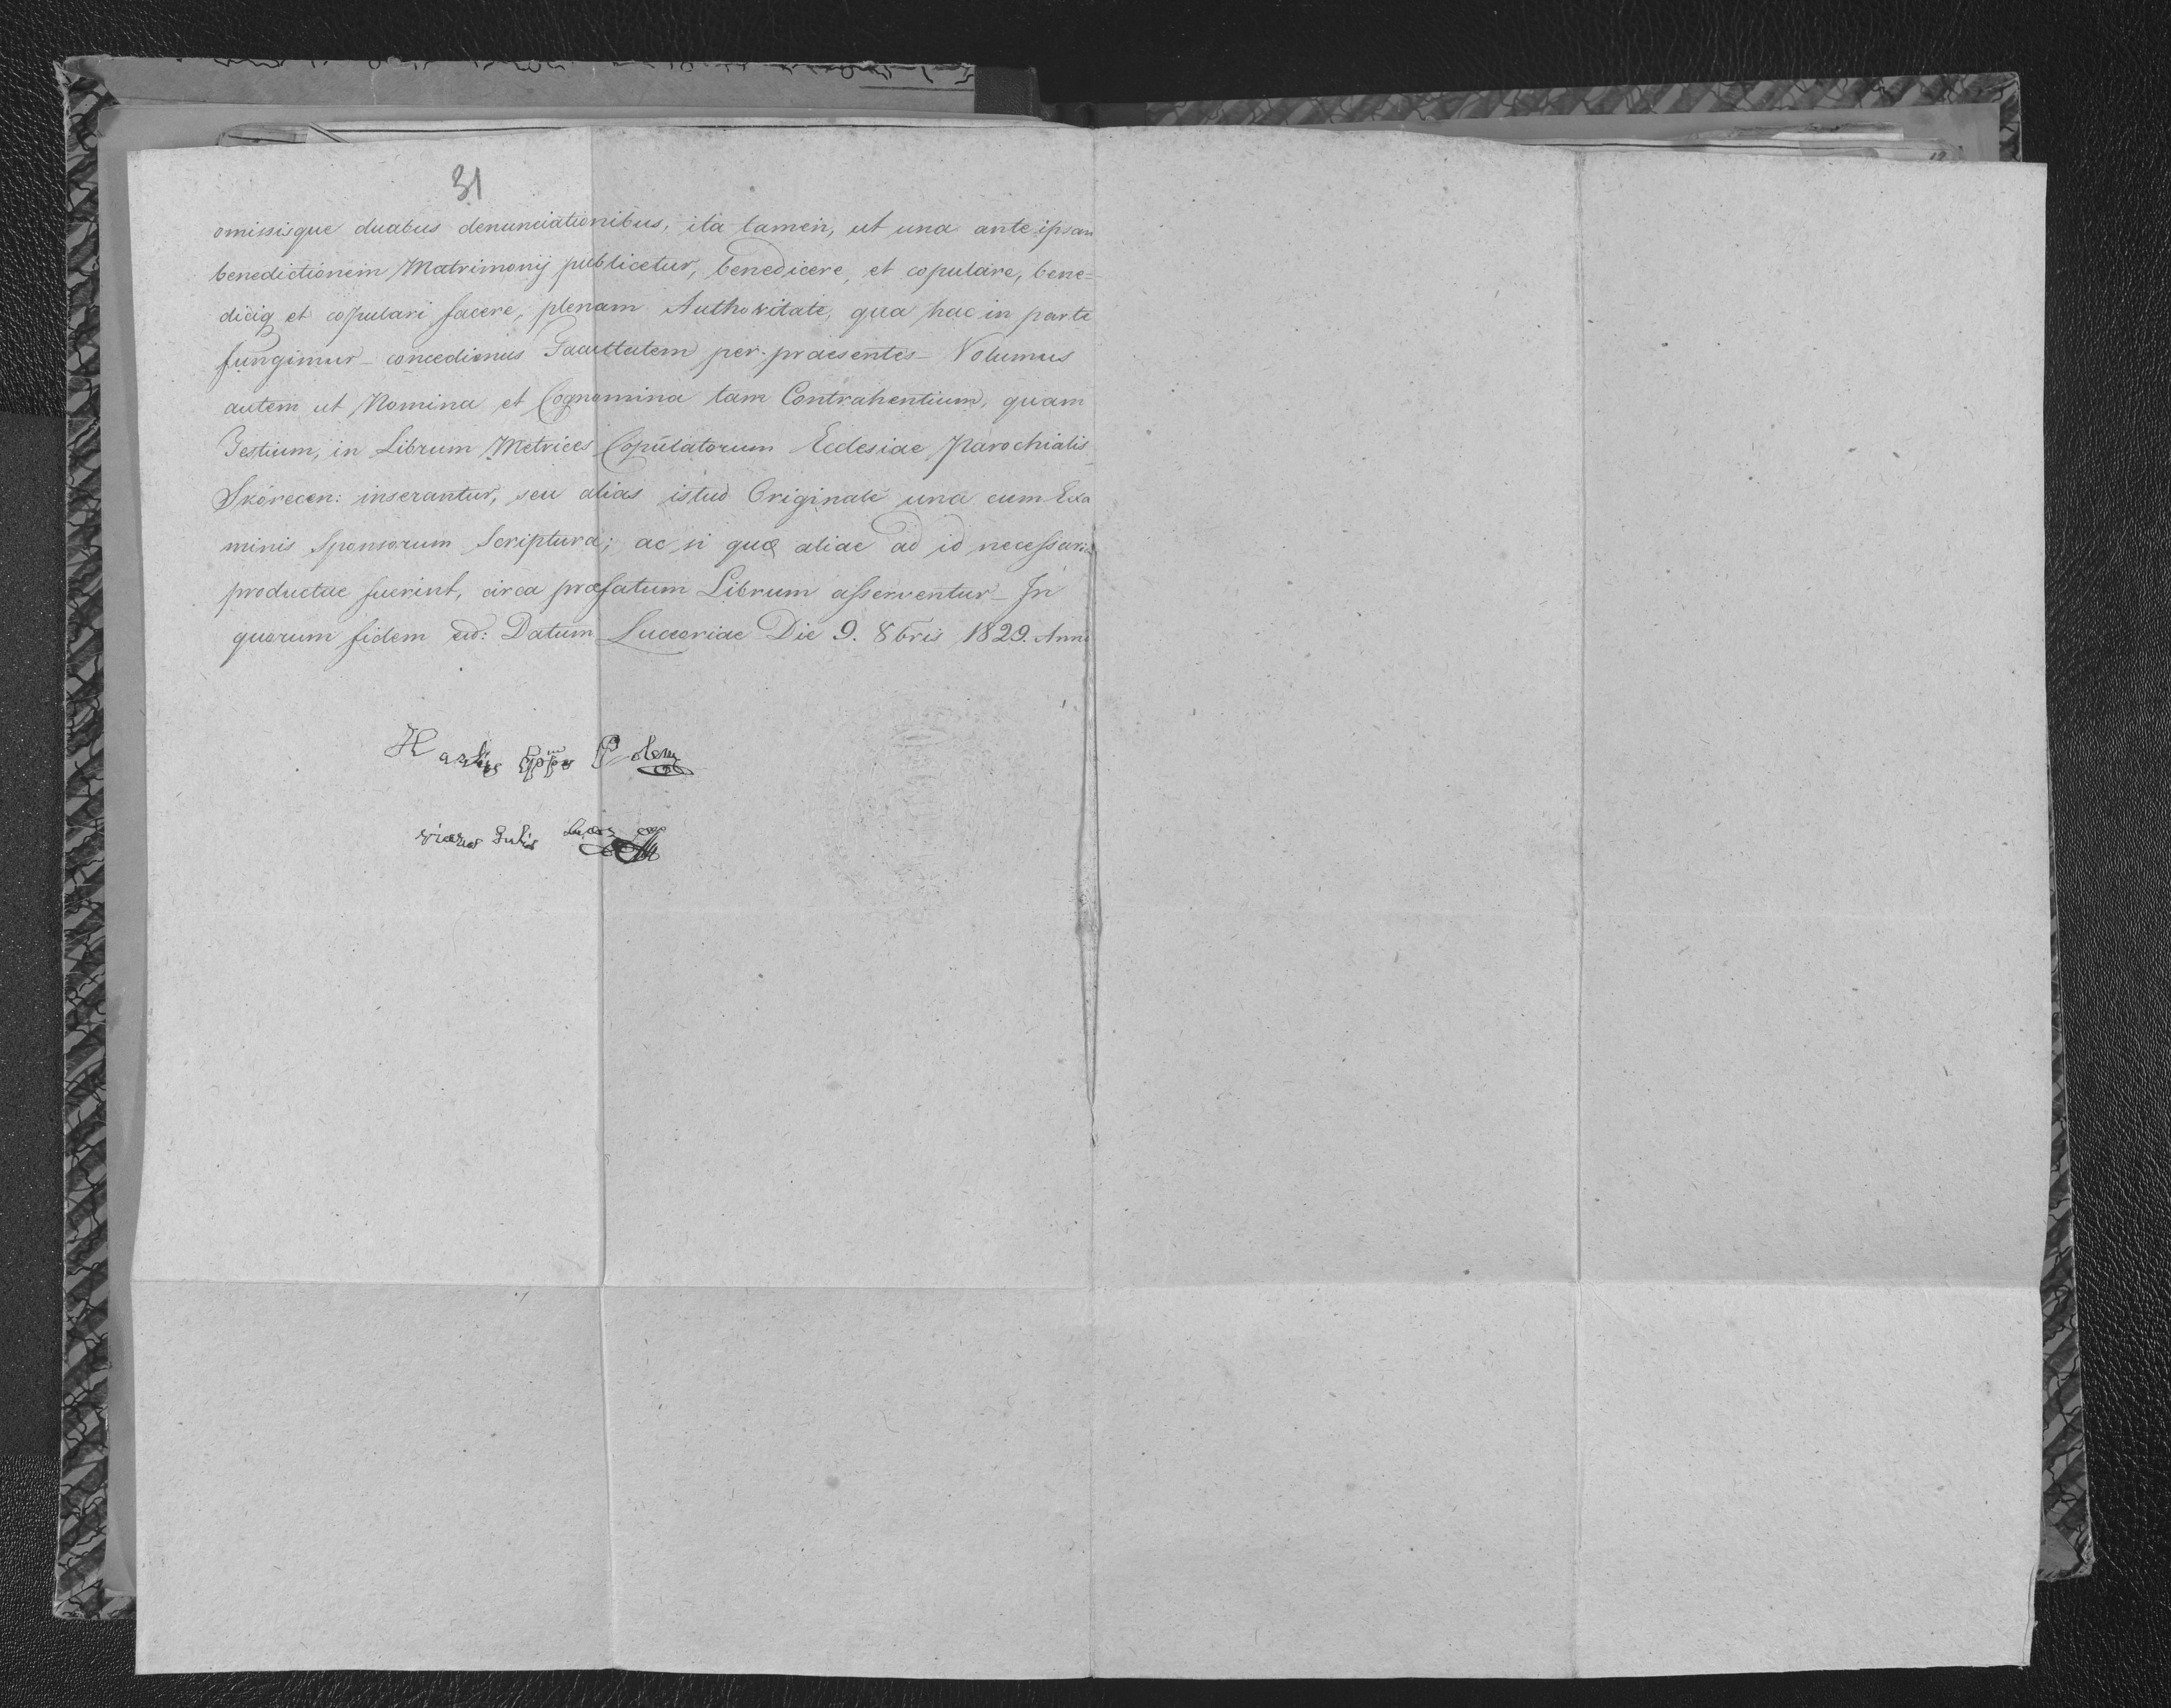 31
omissisque duabus denunciationibus, ita tamen, ut una ante ipsam
benedictionem Matrimonij publicetur, benedicere, et copulare, bene=
diciq et copulari facere, plenam Authoritate, qua hac in parte
fungimur concedimus Facultatem per praesentes Volumus
autem ut Nomina et Cognomina tam Contrahentium, quam
Testium, in Librum Metrices Copulatorum Ecclesiae Parochialis
Skórecen: inserantur, seu alias istud Originale una cum Exa
minis Sponsorum Scriptura; ac si quae aliae ad id necessaria
productae fuerint, circa praefatum Librum asserventur In
quorum fidem Datum Luceoriae Die 9. 8bris 1829. Anni